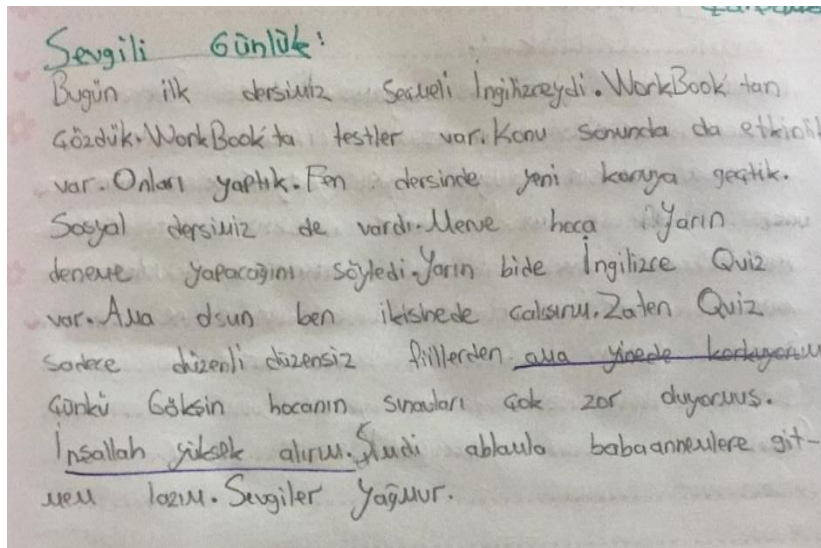 Sevgili Günlük:
Bugün ilk dersimiz Seçmeli İngilizceydi. WorkBook'tan
Çözdük. WorkBook'ta testler var. Konu sonunda da etkinlik
var. Onları yaptık. Fen dersinde yeni konuya geçtik.
Sosyal dersimiz de vardı. Merve hoca Yarın
deneme yapacağını söyledi. Yarın bide İngilizce Quiz
var. Ama olsun ben ikisinede çalışırım. Zaten Quiz
sadece düzenli düzensiz fiillerden ama yinede korkuyorum
Çünkü Gökşin hocanın sınavları çok zor oluyormuş.
İnşallah yüksek alırım. Şimdi ablamla babaannemlere git-
mem lazım. Sevgiler Yağmur.